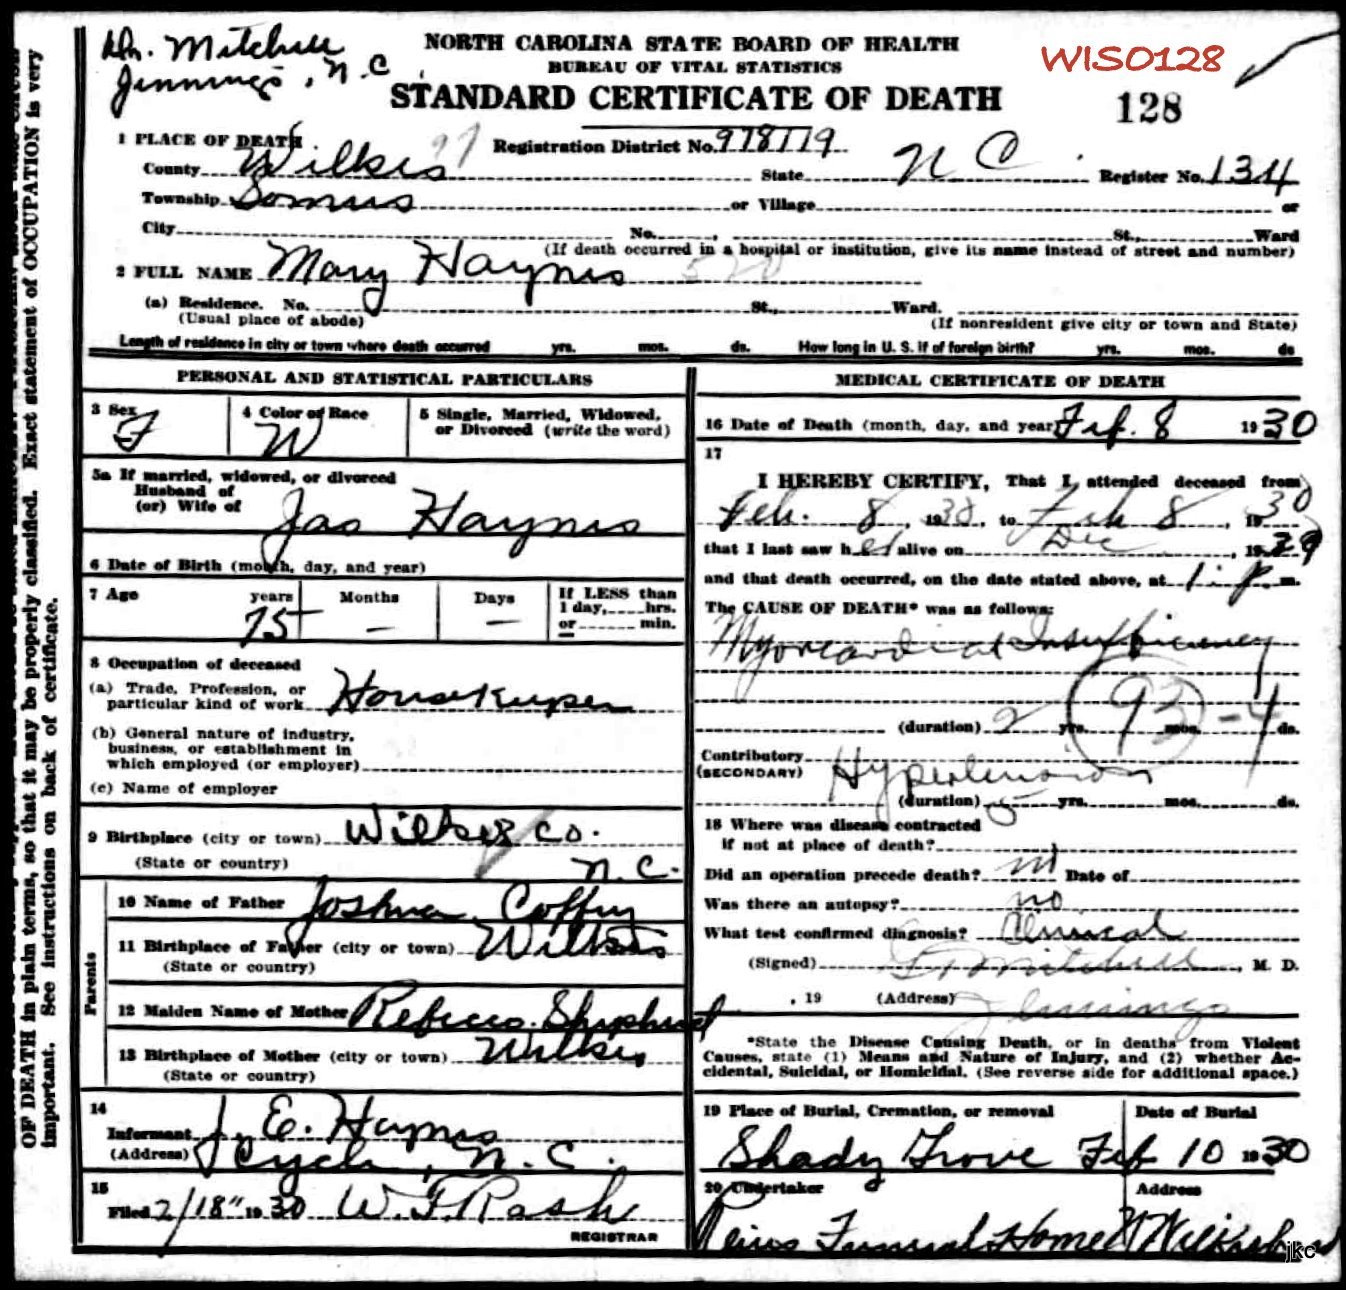 Dr. Mitchell
Jennings, N.C.
NORTH CAROLINA STATE BOARD OF HEALTH
BUREAU OF VITAL STATISTICS
STANDARD CERTIFICATE OF DEATH
WISO128
128
1 PLACE OF DEATH
97
Registration District No. 978119
County Wilkes State N C Register No. 134
Township Somus or Village or
City No. , St., Ward
(If death occurred in a hospital or institution, give its name instead of street and number)
2 FULL NAME Mary Haynes
(a) Residence. No. St., Ward.
(Usual place of abode) (If nonresident give city or town and State)
Length of residence in city or town where death occurred yrs. mos. ds. How long in U. S. if of foreign birth? yrs. mos. ds
PERSONAL AND STATISTICAL PARTICULARS
3 Sex
F
4 Color or Race
W
5 Single, Married, Widowed,
or Divorced (write the word)
5a If married, widowed, or divorced
Husband of
(or) Wife of Jas Haynes
6 Date of Birth (month, day, and year)
7 Age years Months Days If LESS than
1 day, hrs.
75 — — or min.
8 Occupation of deceased
(a) Trade, Profession, or
particular kind of work Housekeeper
(b) General nature of industry,
business, or establishment in
which employed (or employer)
(c) Name of employer
9 Birthplace (city or town) Wilkes Co.
(State or country) N.C.
Parents
10 Name of Father Joshua Coffey
11 Birthplace of Father (city or town) Wilkes
(State or country)
12 Maiden Name of Mother Rebecca Shepherd
13 Birthplace of Mother (city or town) Wilkes
(State or country)
14
Informant J. E. Haynes
(Address) Cycle, N.C.
15
Filed 2/18" 1930 W. F. Rash
REGISTRAR
MEDICAL CERTIFICATE OF DEATH
16 Date of Death (month, day, and year) Feb. 8 1930
17
I HEREBY CERTIFY, That I attended deceased from
Feb. 8, 1930, to Feb 8, 1930
that I last saw her alive on Dec, 1929
and that death occurred, on the date stated above, at 1 P. m.
The CAUSE OF DEATH* was as follows:
Myocardial Insufficiency
93-4
(duration) 2 yrs. mos. ds.
Contributory Hypertension
(SECONDARY)
(duration) 5 yrs. mos. ds.
18 Where was disease contracted
if not at place of death?
Did an operation precede death? no Date of
Was there an autopsy? no
What test confirmed diagnosis? Clinical
(Signed) Mitchell, M. D.
, 19 (Address) Jennings
*State the Disease Causing Death, or in deaths from Violent
Causes, state (1) Means and Nature of Injury, and (2) whether Ac-
cidental, Suicidal, or Homicidal. (See reverse side for additional space.)
19 Place of Burial, Cremation, or removal Date of Burial
Shady Grove Feb 10 1930
20 Undertaker Address
Reins Funeral Home N Wilkesboro
OF DEATH in plain terms, so that it may be properly classified. Exact statement of OCCUPATION is very
important. See instructions on back of certificate.
jkc